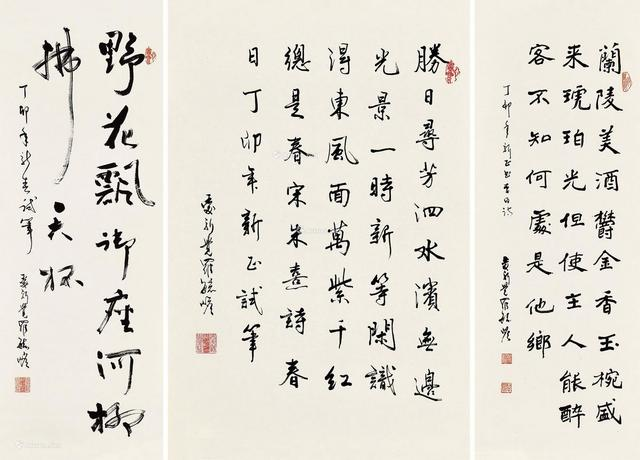 蘭陵美酒鬱金香玉椀盛
来琥珀光但使主人能醉
客不知何處是他鄉
丁卯年新正書李白诗
愛新覺羅毓嶦
勝日尋芳泗水濱無邊
光景一時新等閑識
得東風面萬紫千红
總是春宋朱熹詩春
日丁卯年新正試筆
愛新覺羅毓嶦
野花飄御座河柳
拂天杯
丁卯年新春試筆
愛新覺羅毓嶦